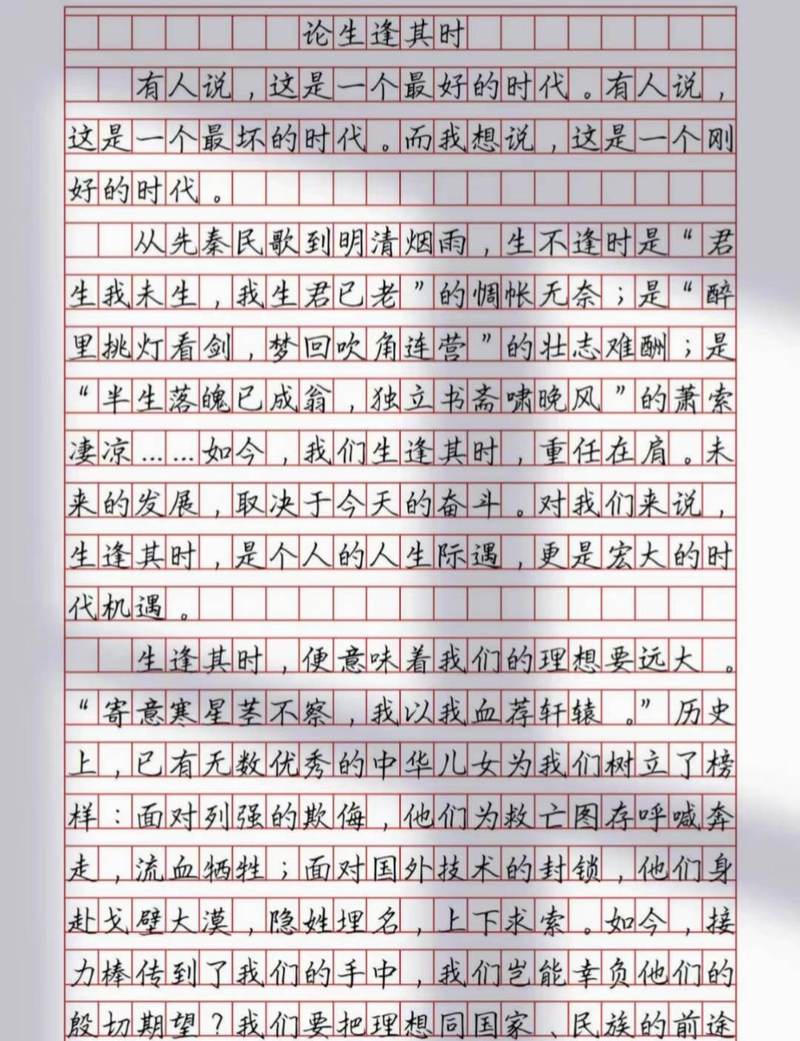 论生逢其时
有人说，这是一个最好的时代。有人说，
这是一个最坏的时代。而我想说，这是一个刚
好的时代。
从先秦民歌到明清烟雨，生不逢时是“君
生我未生，我生君已老”的惆怅无奈；是“醉
里挑灯看剑，梦回吹角连营”的壮志难酬；是
“半生落魄已成翁，独立书斋啸晚风”的萧索
凄凉……如今，我们生逢其时，重任在肩。未
来的发展，取决于今天的奋斗。对我们来说，
生逢其时，是个人的人生际遇，更是宏大的时
代机遇。
生逢其时，便意味着我们的理想要远大。
“寄意寒星荃不察，我以我血荐轩辕。”历史
上，已有无数优秀的中华儿女为我们树立了榜
样：面对列强的欺侮，他们为救亡图存呼喊奔
走，流血牺牲；面对国外技术的封锁，他们身
赴戈壁大漠，隐姓埋名，上下求索。如今，接
力棒传到了我们的手中，我们岂能幸负他们的
殷切期望？我们要把理想同国家、民族的前途